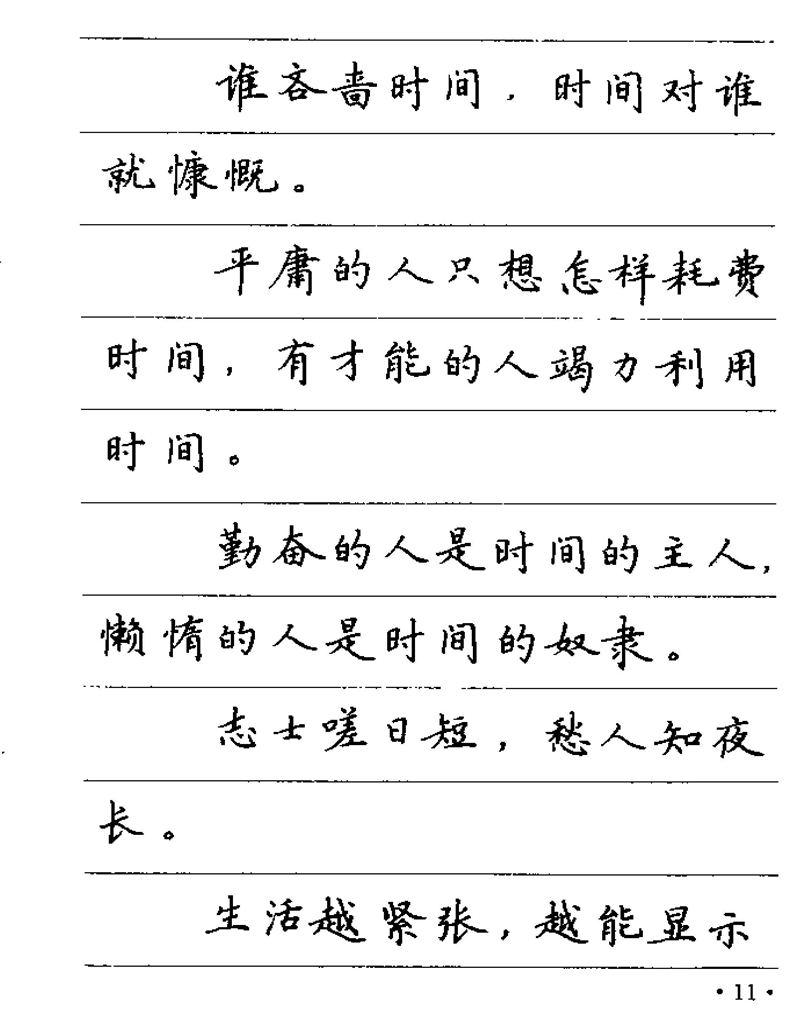 谁吝啬时间，时间对谁
就慷慨。
平庸的人只想怎样耗费
时间，有才能的人竭力利用
时间。
勤奋的人是时间的主人，
懒惰的人是时间的奴隶。
志士嗟日短，愁人知夜
长。
生活越紧张，越能显示
·11·